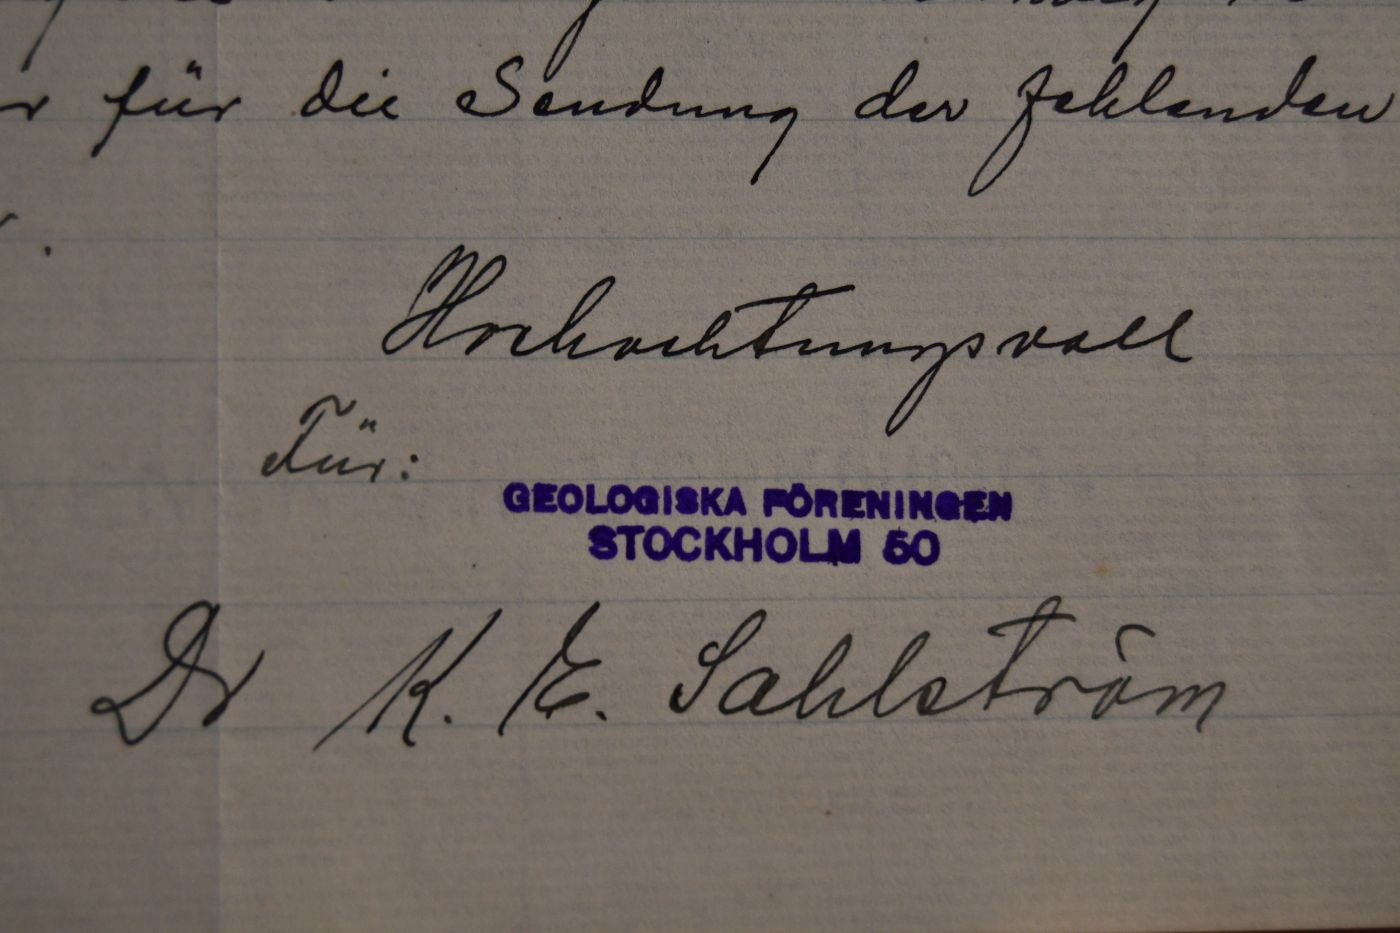 für die Sendung der fehlenden
Hochachtungsvoll
Für:
GEOLOGISKA FÖRENINGEN
STOCKHOLM 50
Dr K. E. Sahlström